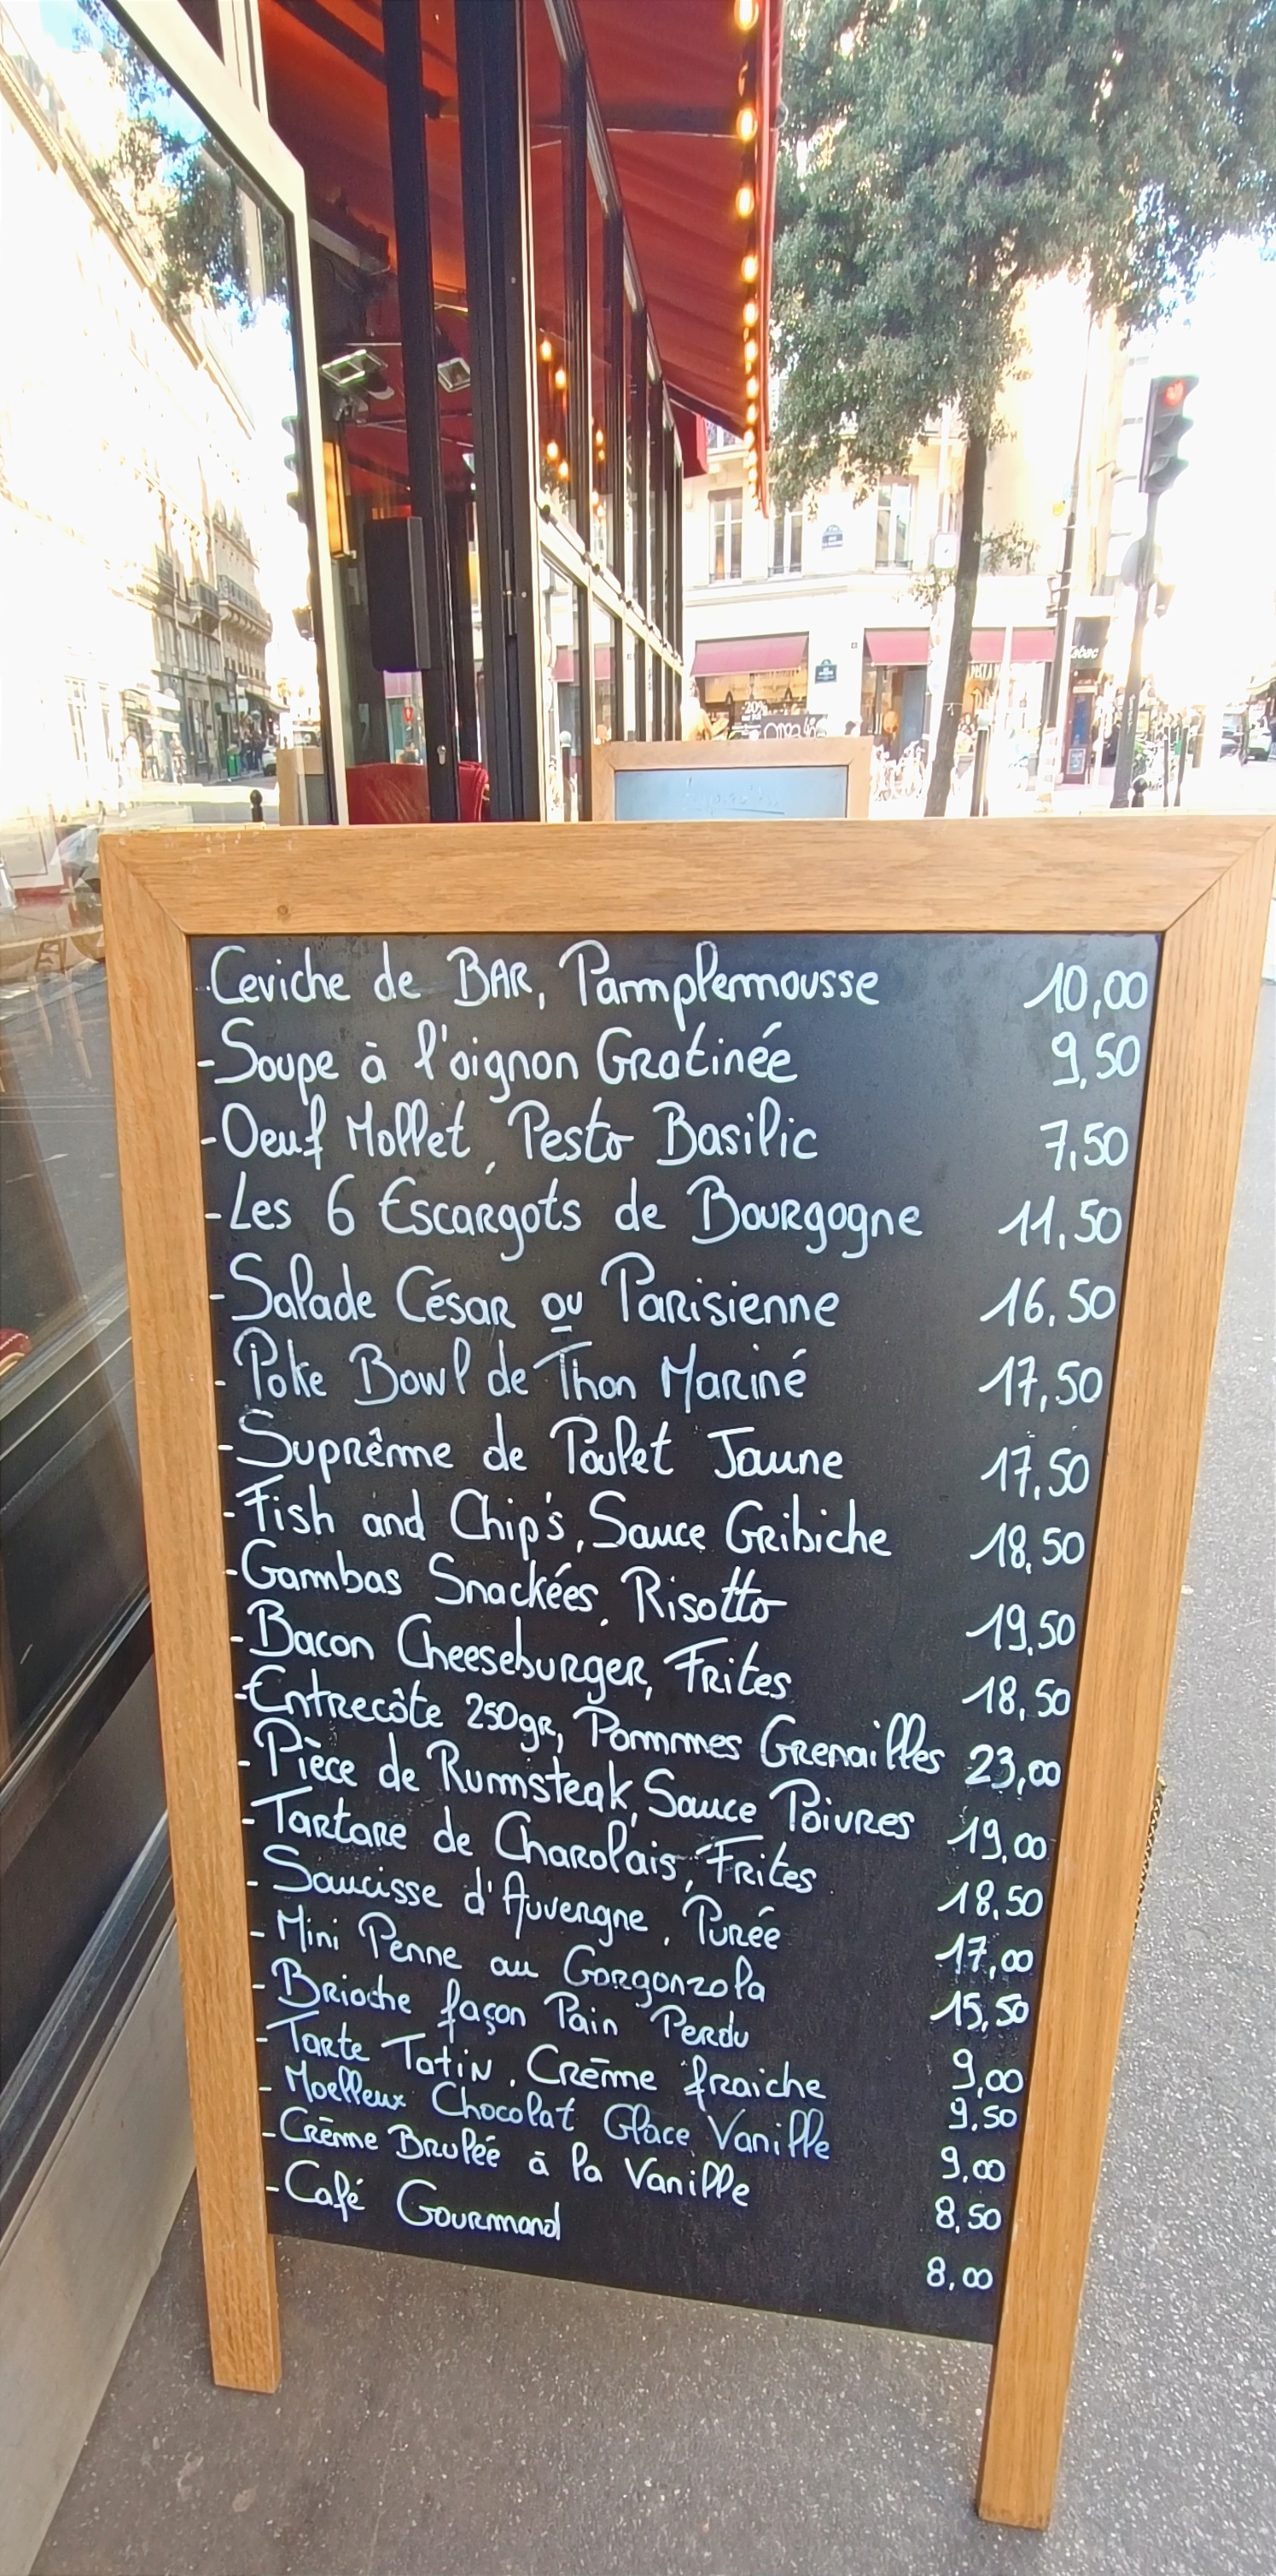 Ceviche de BAR, Pamplemousse 10,00
-Soupe à l'oignon Gratinée 9,50
-Oeuf Mollet, Pesto Basilic 7,50
-Les 6 Escargots de Bourgogne 11,50
-Salade César ou Parisienne 16,50
-Poke Bowl de Thon Mariné 17,50
-Suprême de Poulet Jaune 17,50
-Fish and Chip's, Sauce Gribiche 18,50
-Gambas Snackées, Risotto 19,50
-Bacon Cheeseburger, Frites 18,50
-Entrecôte 250gr, Pommes Grenailles 23,00
-Pièce de Rumsteak, Sauce Poivres 19,00
-Tartare de Charolais, Frites 18,50
-Saucisse d'Auvergne, Purée 17,00
-Mini Penne au Gorgonzola 15,50
-Brioche façon Pain Perdu 9,00
-Tarte Tatin, Crème fraiche 9,50
-Moelleux Chocolat Glace Vanille 9,00
-Crème Brulée à la Vanille 8,50
-Café Gourmand 8,00
Tabac
-20%